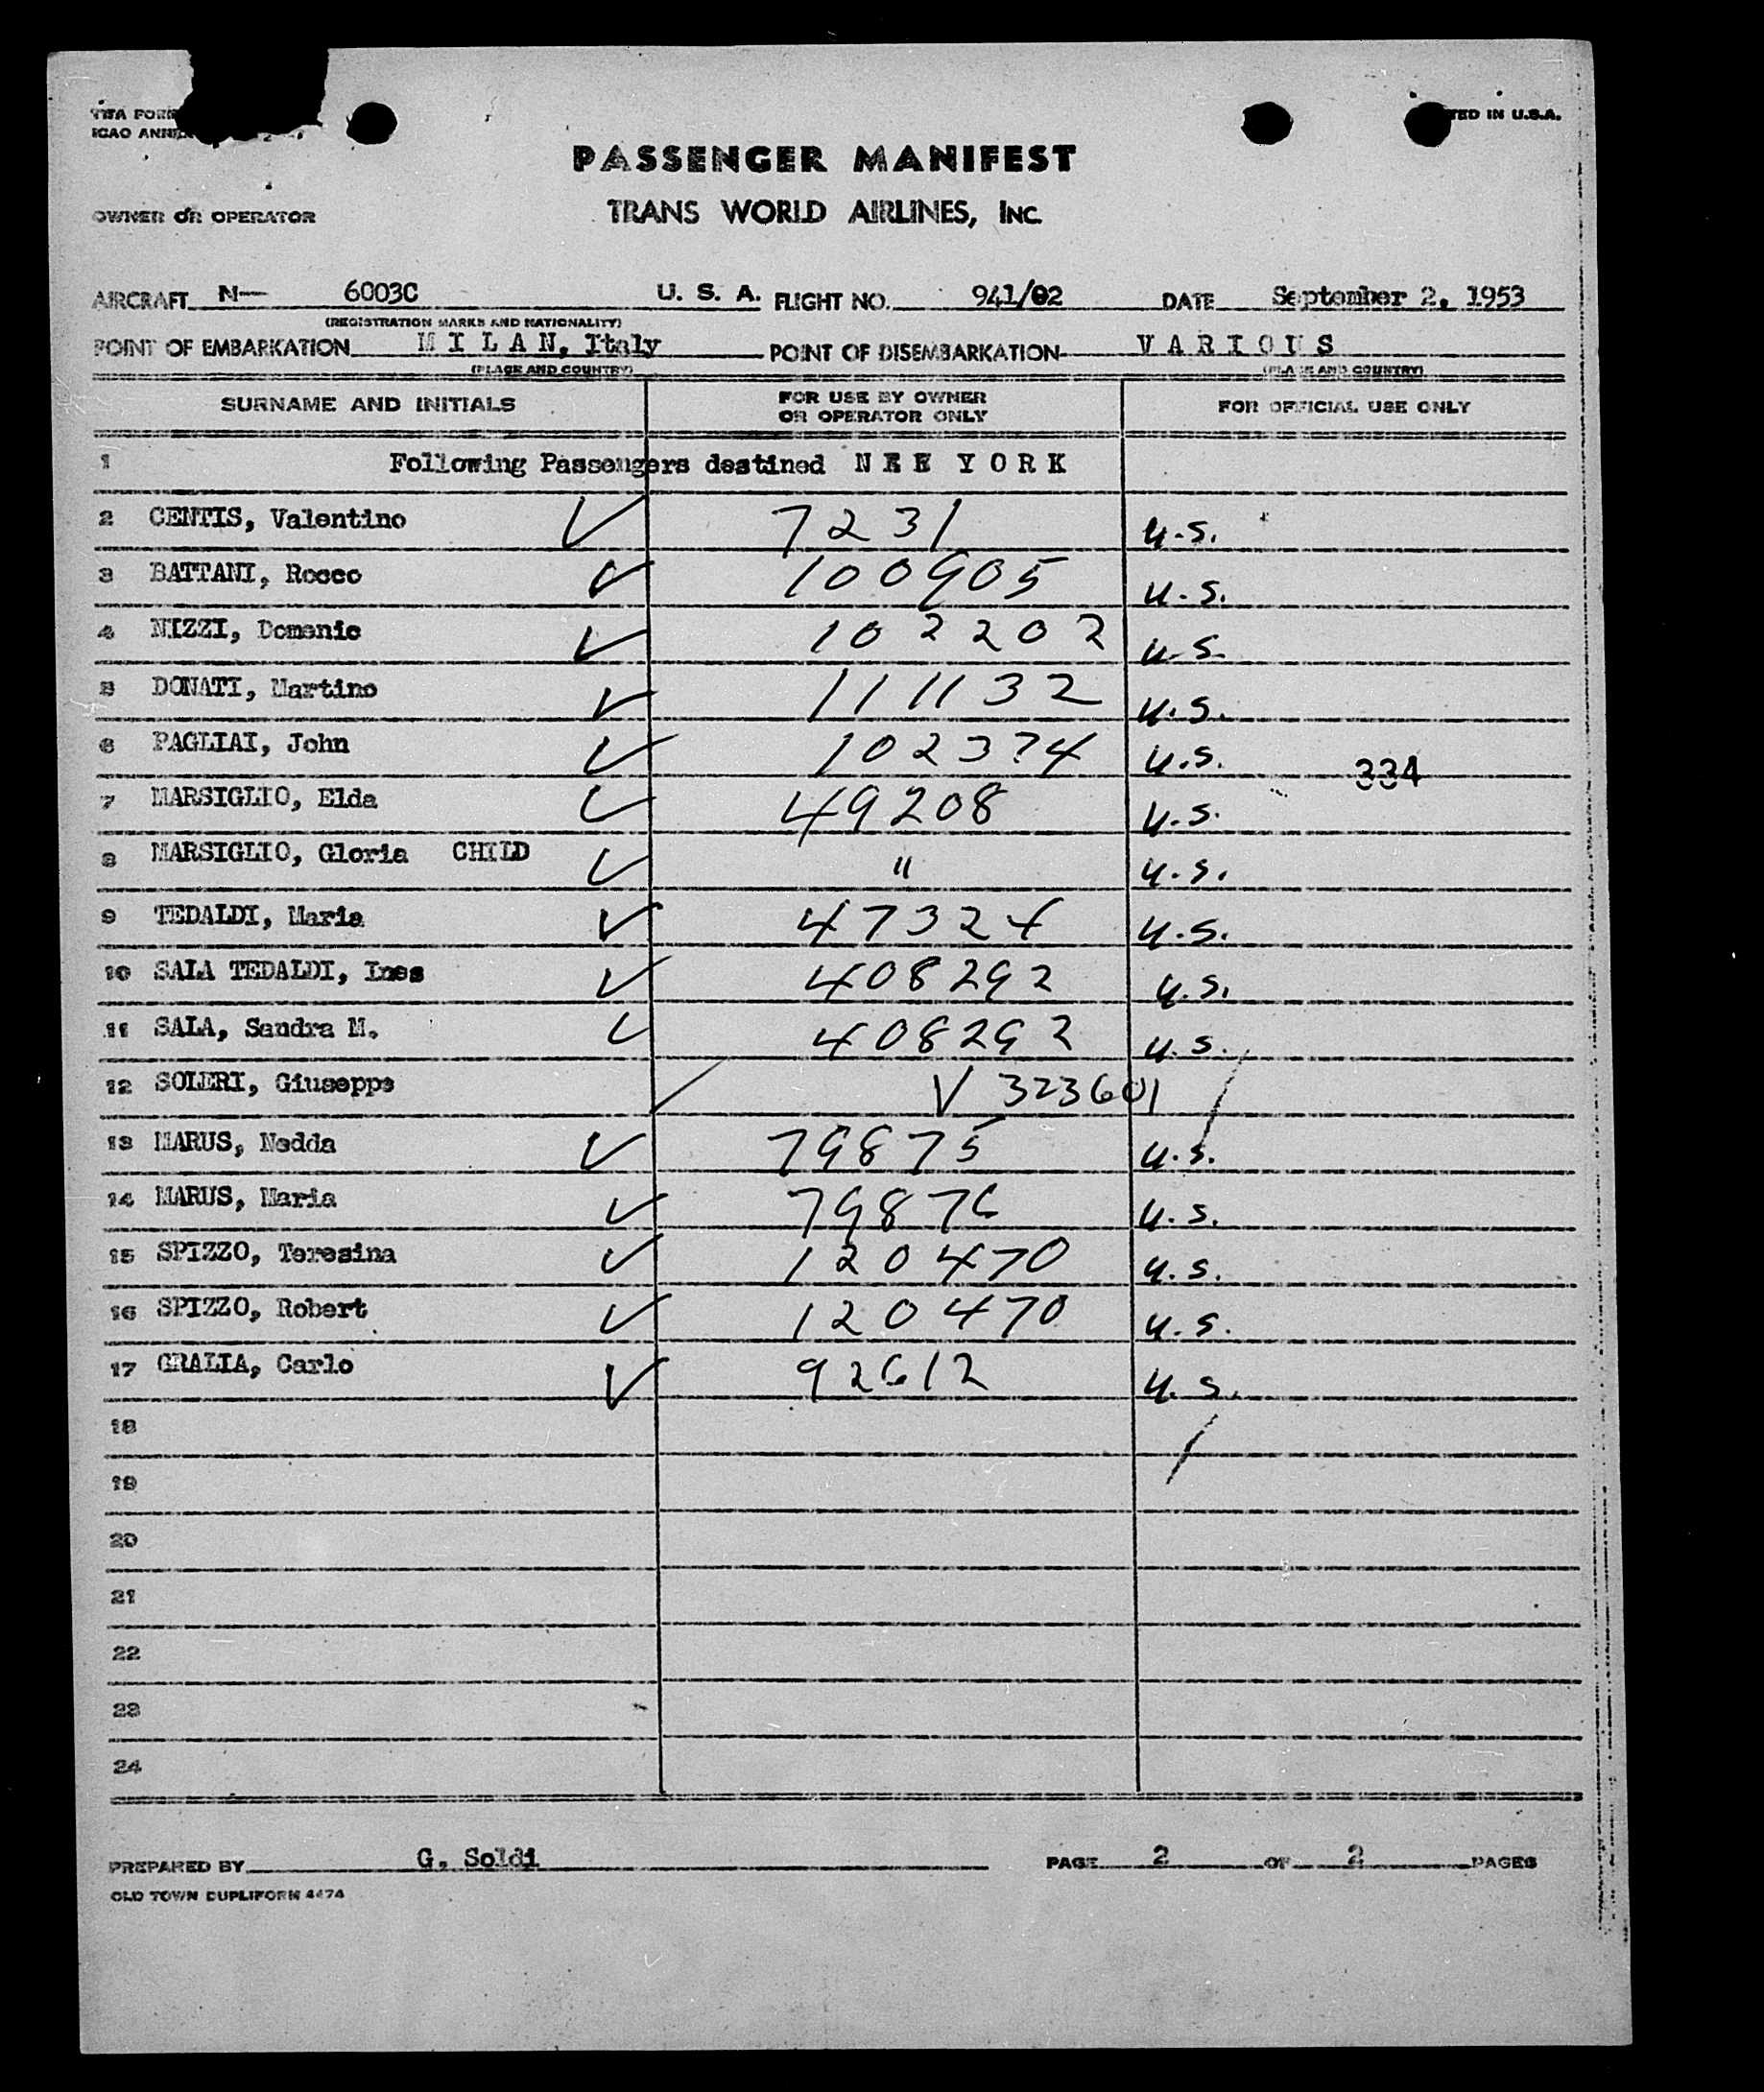 TWA FORM
ICAO ANNEX
TED IN U.S.A.
PASSENGER MANIFEST
OWNER OR OPERATOR TRANS WORLD AIRLINES, INC.
AIRCRAFT N— 6003C U. S. A. FLIGHT NO. 941/02 DATE September 2, 1953
(REGISTRATION MARKS AND NATIONALITY)
POINT OF EMBARKATION M I L A N, Italy POINT OF DISEMBARKATION V A R I O U S
(PLACE AND COUNTRY) (PLACE AND COUNTRY)
SURNAME AND INITIALS FOR USE BY OWNER OR OPERATOR ONLY FOR OFFICIAL USE ONLY
1 Following Passengers destined N E E Y O R K
2 CENTIS, Valentino 7231 U.S.
3 BATTANI, Rocco 100905 U.S.
4 NIZZI, Domenic 102202 U.S.
5 DONATI, Martino 111132 U.S.
6 PAGLIAI, John 102374 U.S. 334
7 MARSIGLIO, Elda 49208 U.S.
8 MARSIGLIO, Gloria CHILD " U.S.
9 TEDALDI, Maria 47324 U.S.
10 SALA TEDALDI, Ines 408292 U.S.
11 SALA, Sandra M. 408292 U.S.
12 SOLERI, Giuseppe V 323601
13 MARUS, Nedda 79875 U.S.
14 MARUS, Maria 79876 U.S.
15 SPIZZO, Teresina 120470 U.S.
16 SPIZZO, Robert 120470 U.S.
17 GRALIA, Carlo 92612 U.S.
18
19
20
21
22
23
24
PREPARED BY G. Soldi PAGE 2 OF 2 PAGES
OLD TOWN DUPLIFORM 4474